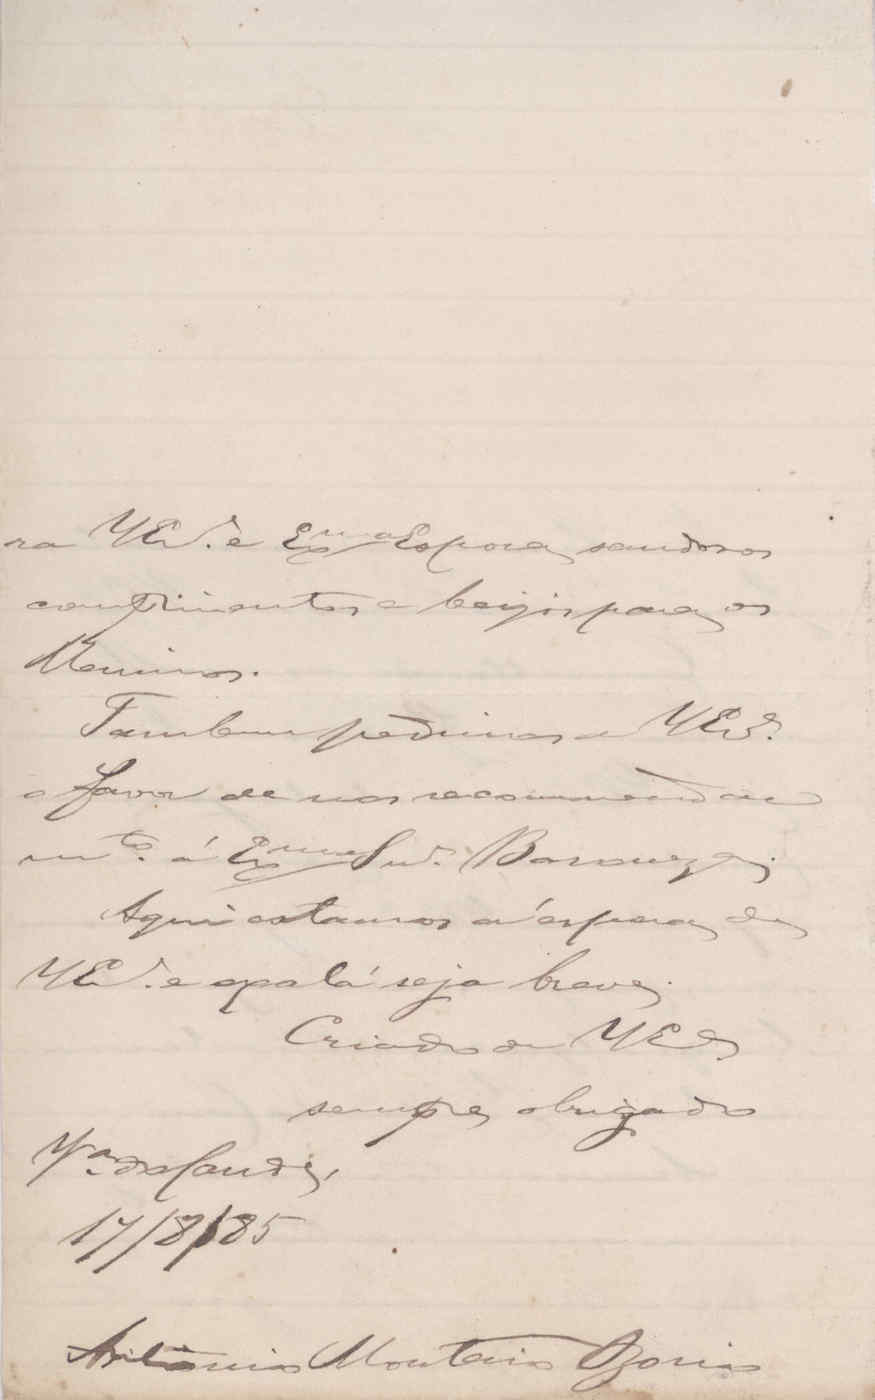 ra VExª. e Exma Esposa, saudosos
comprimentos e beijos para os
Meninos.
Tambem pedimos a VExª.
o favor de nos recommendar
mto. á Exma Snrª. Baroneza;
Aqui estamos á espera de
VExª. e oxalá seja breve.
Criado de VExª
sempre obrigado
Vª. do Conde,
17/8/85
Antonio Monteiro Ozorio